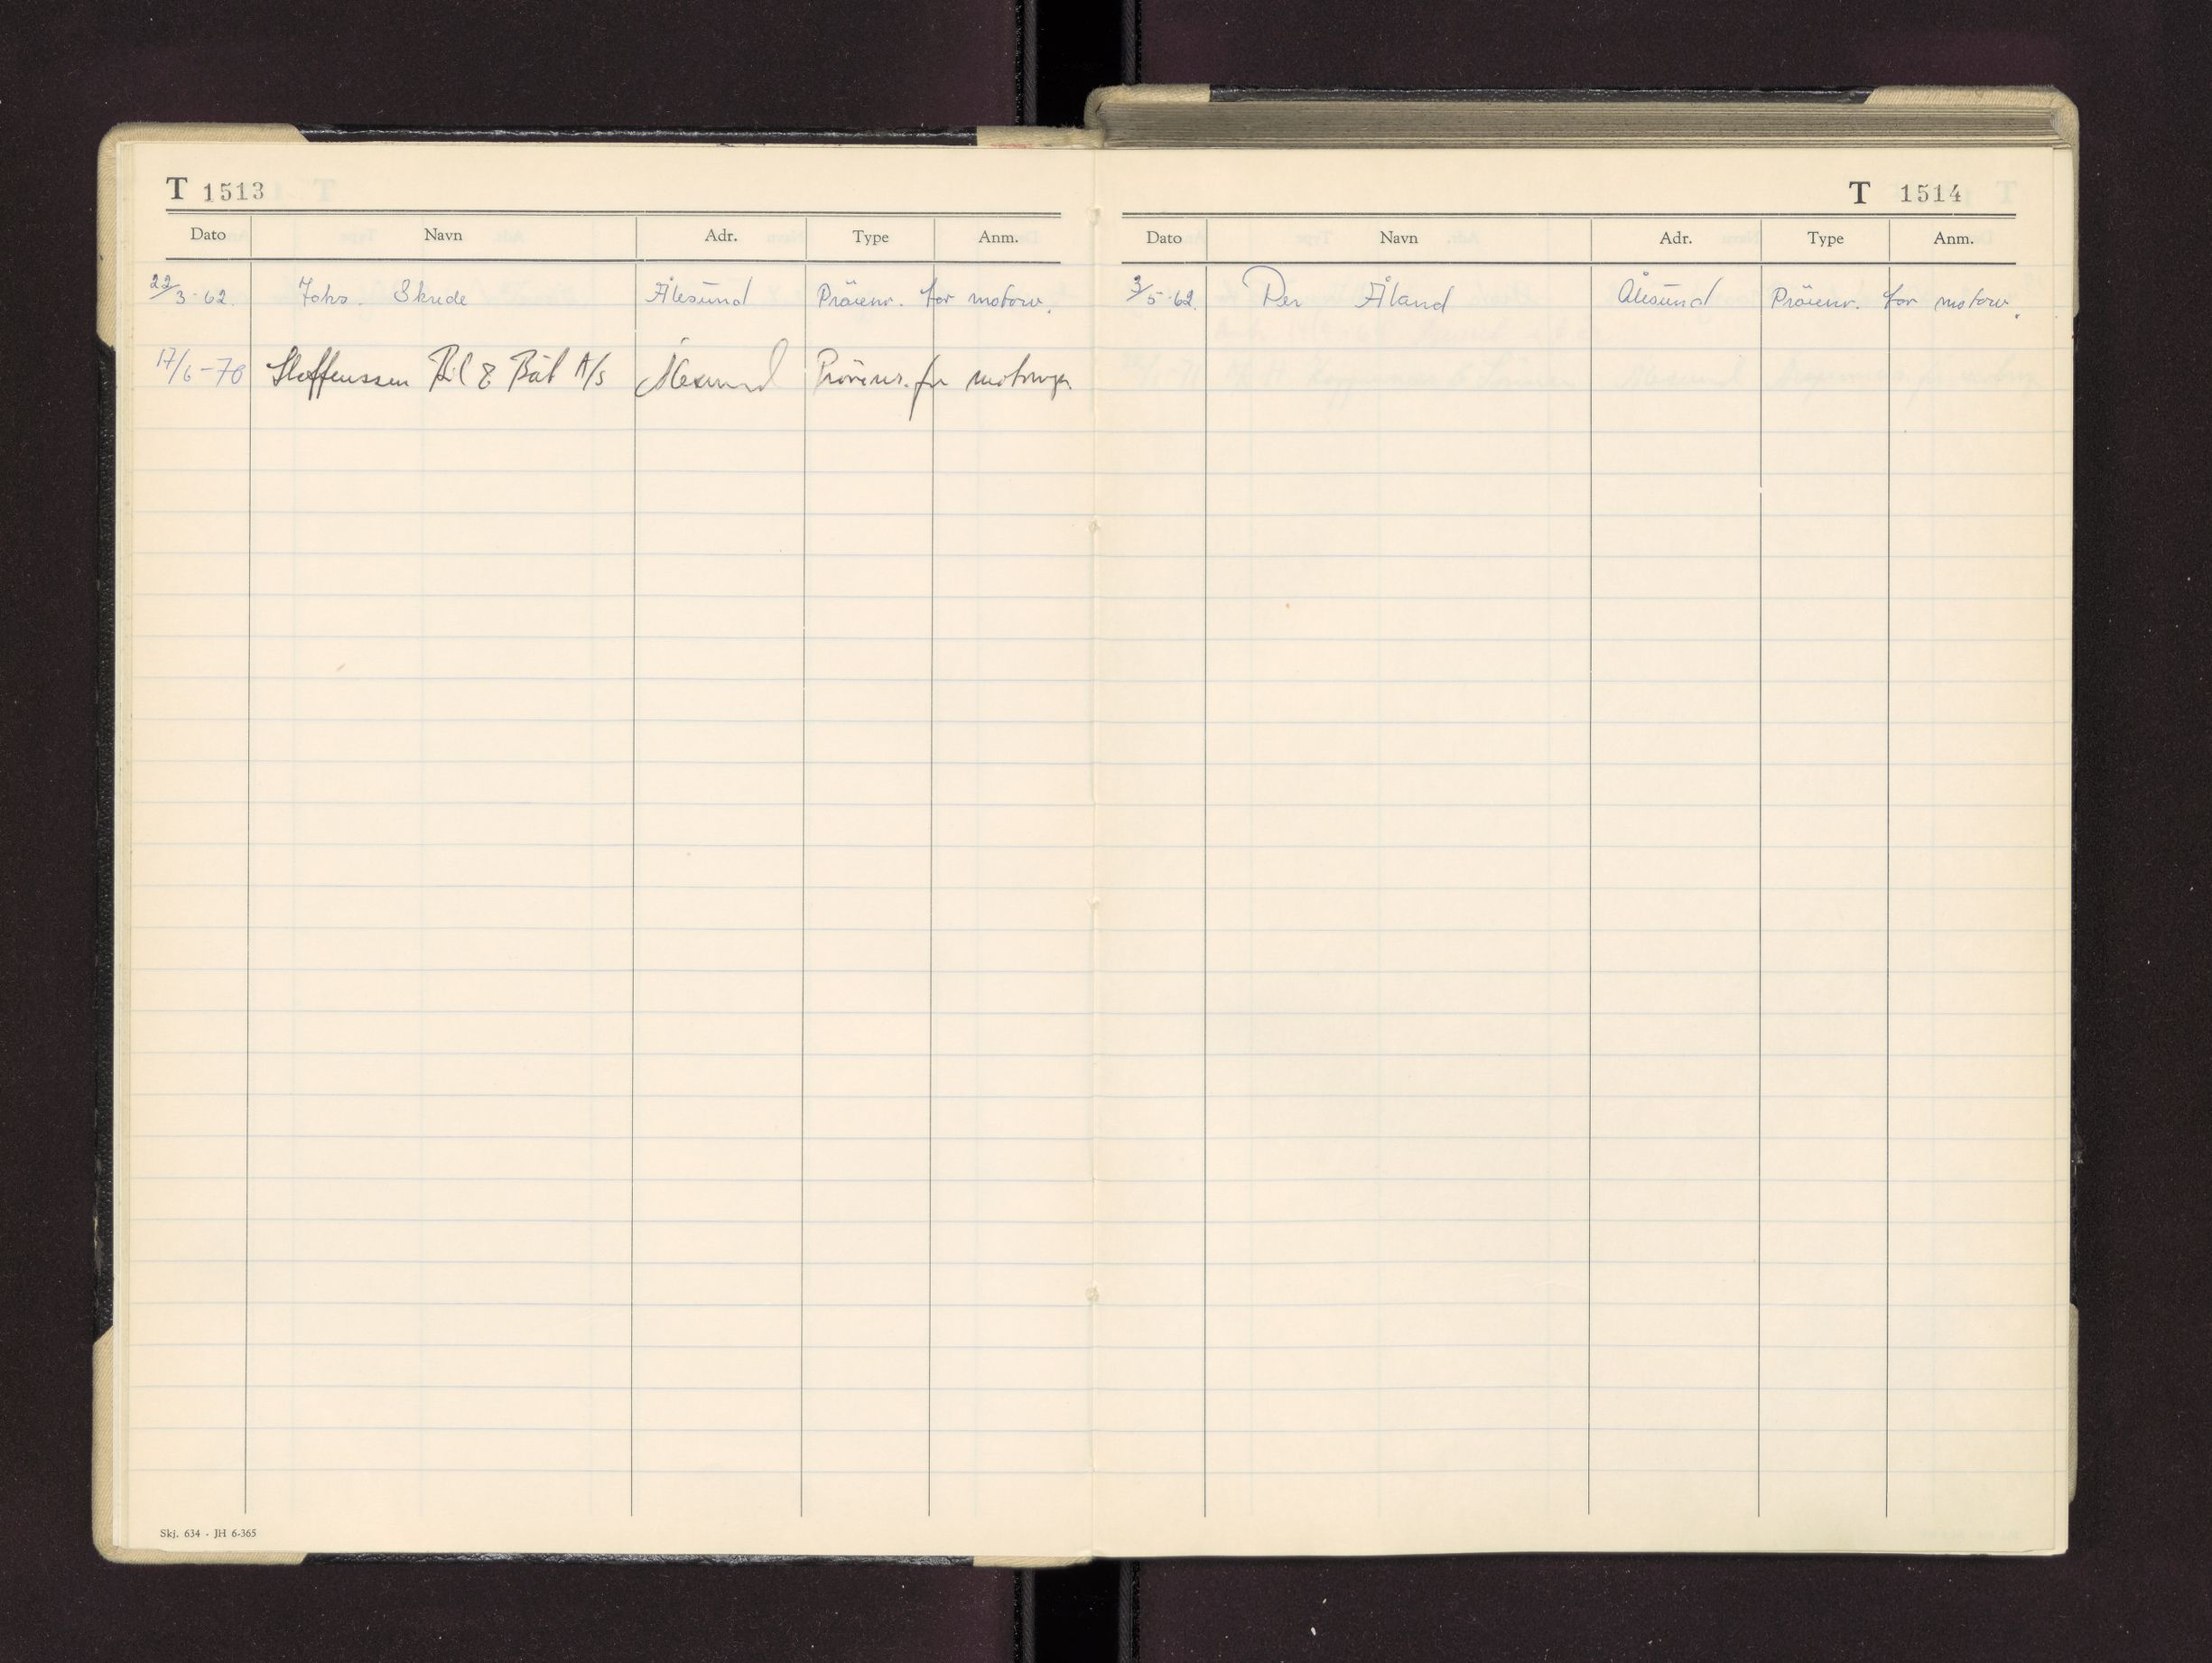 T 1513
Dato Navn Adr. Type Anm.
22/3-62. Johs. Skrede Ålesund Prövenr. for motorv.
17/6-70 Steffenssen Bil & Båt A/s Ålesund Prövenr. for motorvgn.
Skj. 634 - JH 6-365
T 1514
Dato Navn Adr. Type Anm.
3/5-62. Per Åland Ålesund Prövenr. for motorv.